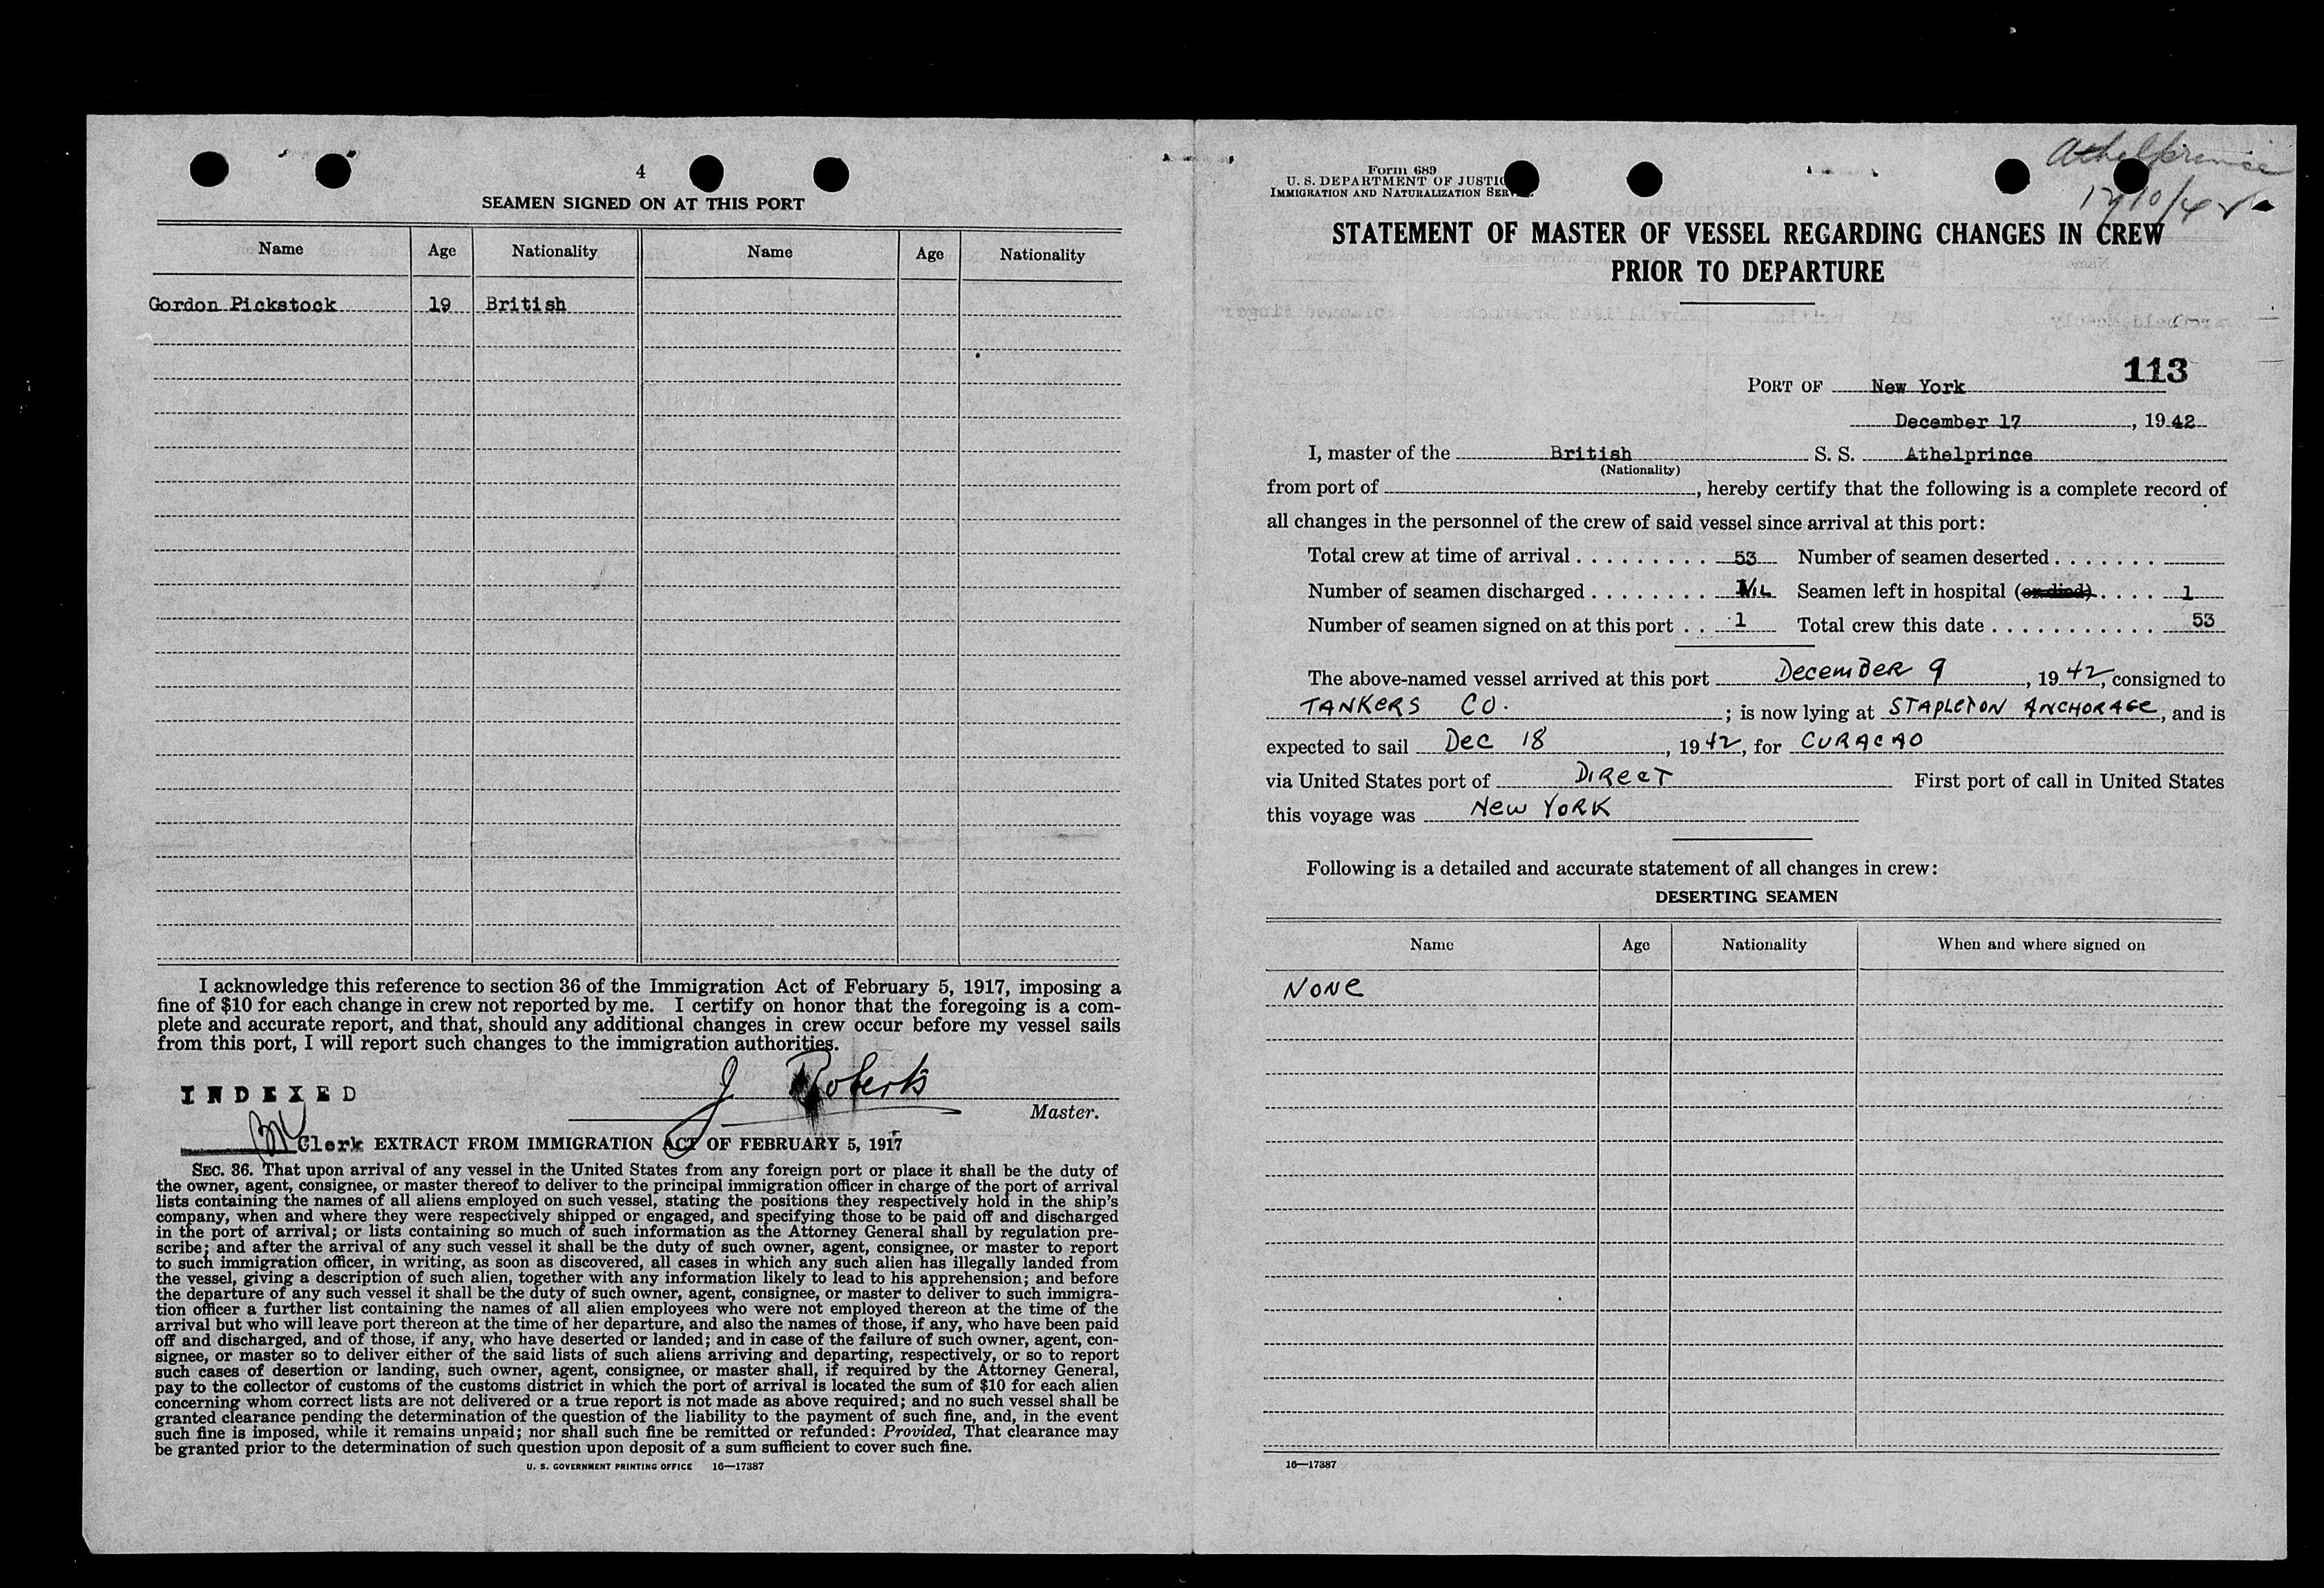 4
SEAMEN SIGNED ON AT THIS PORT
Name Age Nationality Name Age Nationality
Gordon Pickstock 19 British
I acknowledge this reference to section 36 of the Immigration Act of February 5, 1917, imposing a
fine of $10 for each change in crew not reported by me. I certify on honor that the foregoing is a com-
plete and accurate report, and that, should any additional changes in crew occur before my vessel sails
from this port, I will report such changes to the immigration authorities.
INDEXED
J Roberts
Master.
Clerk EXTRACT FROM IMMIGRATION ACT OF FEBRUARY 5, 1917
SEC. 36. That upon arrival of any vessel in the United States from any foreign port or place it shall be the duty of
the owner, agent, consignee, or master thereof to deliver to the principal immigration officer in charge of the port of arrival
lists containing the names of all aliens employed on such vessel, stating the positions they respectively hold in the ship's
company, when and where they were respectively shipped or engaged, and specifying those to be paid off and discharged
in the port of arrival; or lists containing so much of such information as the Attorney General shall by regulation pre-
scribe; and after the arrival of any such vessel it shall be the duty of such owner, agent, consignee, or master to report
to such immigration officer, in writing, as soon as discovered, all cases in which any such alien has illegally landed from
the vessel, giving a description of such alien, together with any information likely to lead to his apprehension; and before
the departure of any such vessel it shall be the duty of such owner, agent, consignee, or master to deliver to such immigra-
tion officer a further list containing the names of all alien employees who were not employed thereon at the time of the
arrival but who will leave port thereon at the time of her departure, and also the names of those, if any, who have been paid
off and discharged, and of those, if any, who have deserted or landed; and in case of the failure of such owner, agent, con-
signee, or master so to deliver either of the said lists of such aliens arriving and departing, respectively, or so to report
such cases of desertion or landing, such owner, agent, consignee, or master shall, if required by the Attorney General,
pay to the collector of customs of the customs district in which the port of arrival is located the sum of $10 for each alien
concerning whom correct lists are not delivered or a true report is not made as above required; and no such vessel shall be
granted clearance pending the determination of the question of the liability to the payment of such fine, and, in the event
such fine is imposed, while it remains unpaid; nor shall such fine be remitted or refunded: Provided, That clearance may
be granted prior to the determination of such question upon deposit of a sum sufficient to cover such fine.
U. S. GOVERNMENT PRINTING OFFICE 16—17387
Athelprince
Form 689
U. S. DEPARTMENT OF JUSTIC
IMMIGRATION AND NATURALIZATION SER
STATEMENT OF MASTER OF VESSEL REGARDING CHANGES IN CREW
PRIOR TO DEPARTURE
113
PORT OF New York
December 17, 1942
I, master of the British S. S. Athelprince
(Nationality)
from port of , hereby certify that the following is a complete record of
all changes in the personnel of the crew of said vessel since arrival at this port:
Total crew at time of arrival 53 Number of seamen deserted
Number of seamen discharged NIL Seamen left in hospital (or died) 1
Number of seamen signed on at this port 1 Total crew this date 53
The above-named vessel arrived at this port December 9, 1942, consigned to
TANKERS CO. ; is now lying at STAPLETON ANCHORAGE, and is
expected to sail Dec 18, 1942, for CURACAO
via United States port of DIRECT First port of call in United States
this voyage was New YORK
Following is a detailed and accurate statement of all changes in crew:
DESERTING SEAMEN
Name Age Nationality When and where signed on
NONE
16—17387